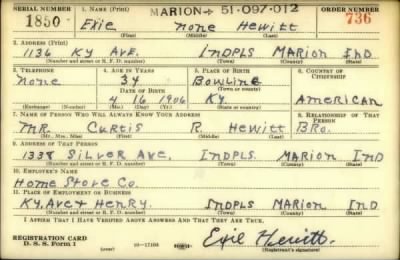 SERIAL NUMBER 1. NAME (Print) MARION + 51-097-012 ORDER NUMBER
1850 Exie none Hewitt 736
(First) (Middle) (Last)
2. ADDRESS (Print)
1136 Ky Ave. INDPLS MARION IND
(Number and street or R. F. D. number) (Town) (County) (State)
3. TELEPHONE 4. AGE IN YEARS 5. PLACE OF BIRTH 6. COUNTRY OF CITIZENSHIP
none 34 Bowline
DATE OF BIRTH (Town or county)
4 16 1906 Ky American
(Exchange) (Number) (Mo.) (Day) (Yr.) (State or country)
7. NAME OF PERSON WHO WILL ALWAYS KNOW YOUR ADDRESS 8. RELATIONSHIP OF THAT PERSON
MR. Curtis R. Hewitt BRo.
(Mr., Mrs., Miss) (First) (Middle) (Last)
9. ADDRESS OF THAT PERSON
1338 SILVER AVE, INDPLS. MARION IND
(Number and street or R. F. D. number) (Town) (County) (State)
10. EMPLOYER'S NAME
Home Stove Co.
11. PLACE OF EMPLOYMENT OR BUSINESS
Ky, Ave + Henry. INDPLS MARION IND
(Number and street or R. F. D. number) (Town) (County) (State)
I AFFIRM THAT I HAVE VERIFIED ABOVE ANSWERS AND THAT THEY ARE TRUE.
REGISTRATION CARD
D. S. S. Form 1 Exie Hewitt.
(Registrant's signature)